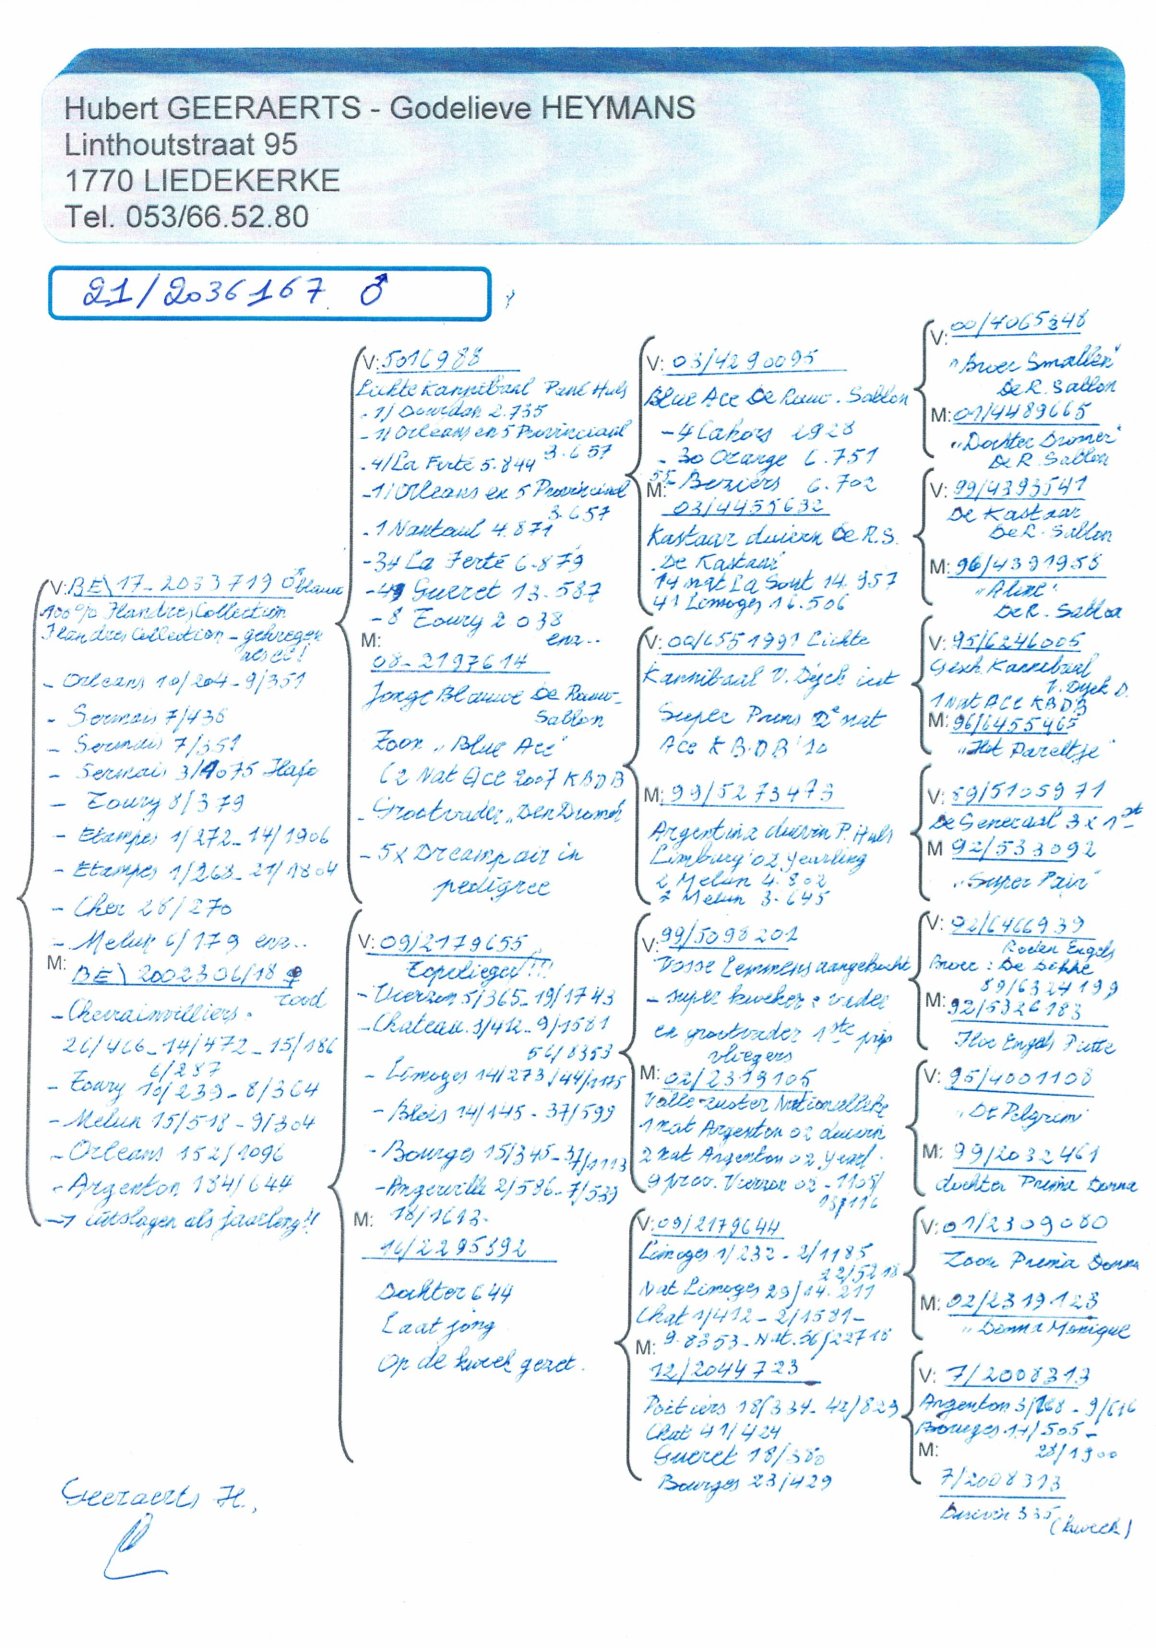 Hubert GEERAERTS - Godelieve HEYMANS
Linthoutstraat 95
1770 LIEDEKERKE
Tel. 053/66.52.80
21/2036167 ♂
V: BE\17-2033719 ♂ blauw
100% Flandres Collection
Flandres Collection - gekregen
als ei!
- Orleans 10/204 - 9/351
- Sermais 7/436
- Sermais 7/351
- Sermais 3/4075 Hafo
- Toury 8/379
- Etampes 1/272 - 14/1906
- Etampes 1/268 - 21/1804
- Cher 28/270
- Melun 6/179 enz..
M: BE\2002306/18 ♀
rood
- Chevrainvilliers -
26/466 - 14/472 - 15/186
6/287
- Toury 10/239 - 8/364
- Melun 15/518 - 9/304
- Orleans 152/1096
- Argenton 184/644
→ uitslagen als jaarling!!
V: 5016988
Lichte Kannibaal Paul Huls
- 1/ Dourdan 2.735
- 1/ Orleans en 5 Provinciaal
3.657
- 4/La Ferté 5.844
- 1/Orleans en 5 Provinciaal
3.657
- 1 Nanteuil 4.871
- 34 La Ferté 6.879
- Gueret 13.587
- 8 Toury 2038
enz..
M:
08-2197614
Jonge Blauwe De Rauw-
Sablon
Zoon "Blue Ace"
(2 Nat Ace 2007 KBDB
- Grootvader "Den Dromer
- 5x Dreampair in
pedigree
V: 09/2179655
Topvlieger!!!
- Vierzon 5/365 - 19/1743
- Chateau. 3/412 - 9/1581
56/8353
- Limoges 14/273/44/1175
- Blois 14/145 - 37/599
- Bourges 15/345 - 37/1113
- Angerville 2/586 - 7/539
M: 18/1613.
16/2295392
Dochter 644
Laat jong
Op de kweek gezet.
V: 03/4290095
Blue Ace De Rauw. Sablon
- 4 Cahors 1928
- 30 Orange 6.751
55 Beziers 6.702
M:
03/4455632
Kastaar duivin De R.S.
De Kastaar
14 nat La Sout 14.957
41 Limoges 16.506
V: 00/6551991 Lichte
Kannibaal V. Dyck uit
Super Prins 2e nat
Ace KBDB '10
M: 99/5273473
Argentina duivin P. Huls
Limburg '02 yearling
2 Melun 4.802
2 Melun 3.645
V: 99/5098201
Vosse Lemmens aangekocht
- super kweker: vader
en grootvader 1ste prijs
vliegers
M: 02/2319105
Volle zuster Nationallike
1 nat Argenton 02 duivin
2 nat Argenton 02 yearl.
9 prov. Vierzon 02 - 1108/
V: 09/2179644
Limoges 1/232 - 2/1185
22/5218
Nat Limoges 29/14.211
Chat 1/412 - 2/1581 -
9.8353 - Nat. 56/22718
M:
12/2044723
Poitiers 18/334 - 42/829
Chat 41/424
Gueret 18/380
Bourges 23/429
V: 00/4065348
"Broer Smallen"
De R. Sablon
M: 01/4489665
"Dochter Dromer"
De R. Sablon
V: 99/4393541
De Kastaar
De R. Sablon
M: 96/4391958
"Aline"
De R. Sablon
V: 95/6246005
Gesch. Kannibaal
V. Dyck D.
1 Nat Ace KBDB
M: 96/6455465
"Het Pareltje"
V: 89/5105971
De Generaal 3 x 1ste
M 92/533092
"Super Pair"
V: 02/6466939
Roden Engels
Broer: De Dikke
89/6324199
M: 92/5326183
Engels Putte
V: 95/4001108
"De Pelgrim"
M: 99/2032461
dochter Prima Donna
V: 01/2309080
Zoon Prima Donna
M: 02/2319123
"Donna Monique
V: 7/2008313
Argenton 3/168 - 9/616
Bourges 17/505 -
M: 28/1900
7/2008313
Duivin 335
(kweek)
Geeraerts H.,